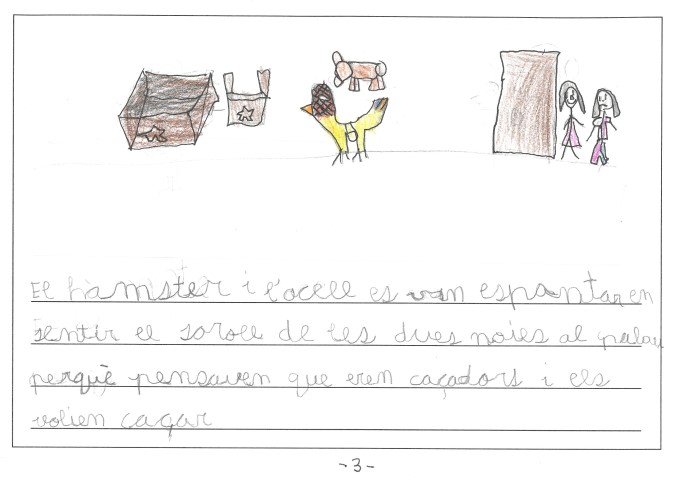 El hàmster i l'ocell es van espantar en
sentir el soroll de les dues noies al palau
perquè pensaven que eren caçadors i els
volien caçar
-3-